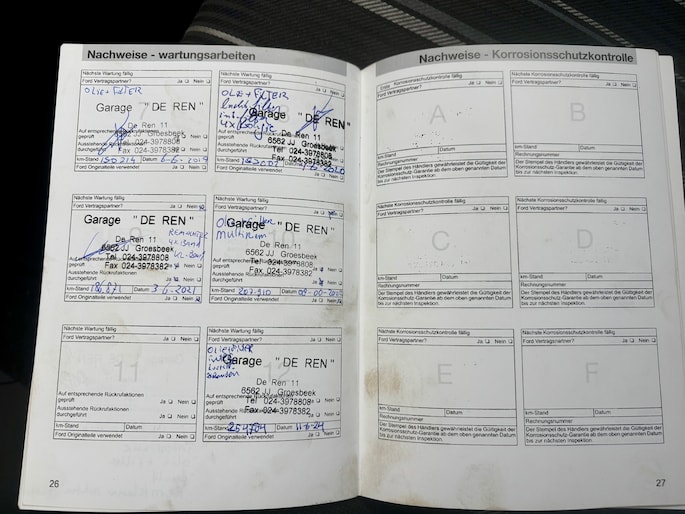 Nachweise - wartungsarbeiten
Nächste Wartung fällig
Ford Vertragspartner? Ja Nein
OLIE + FILTER
Garage "DE REN"
De Ren 11
6562 JJ Groesbeek
Tel 024-3978808
Fax 024-3978382
Auf entsprechende
geprüft
Ausstehende
durchgeführt
km-Stand 150214 6-6-2019
Ford Originalteile verwendet Ja Nein
Nächste Wartung fällig
Ford Vertragspartner? Ja Nein
OLIE + FILTER
Garage "DE REN"
De Ren 11
6562 JJ Groesbeek
Tel 024-3978808
Fax 024-3978382
km-Stand
Ford Originalteile verwendet Ja Nein
Nächste Wartung fällig
Ford Vertragspartner? Ja Nein
Garage "DE REN"
De Ren 11
6562 JJ Groesbeek
Tel 024-3978808
Fax 024-3978382
Ausstehende Rückrufaktionen
durchgeführt
km-Stand Datum 3-6-2021
Ford Originalteile verwendet Ja Nein
Nächste Wartung fällig
Ford Vertragspartner?
10
Garage "DE REN"
De Ren 11
6562 JJ Groesbeek
Tel 024-3978808
Fax 024-3978382
Ausstehende Rückrufaktionen
durchgeführt
km-Stand 207.910 Datum
Ford Originalteile verwendet Ja Nein
Nächste Wartung fällig
Ford Vertragspartner? Ja Nein
11
Auf entsprechende Rückrufaktionen
geprüft Ja Nein
Ausstehende Rückrufaktionen
durchgeführt Ja Nein
km-Stand Datum
Ford Originalteile verwendet Ja Nein
Nächste Wartung fällig
Ford Vertragspartner? Ja Nein
12
Garage "DE REN"
De Ren 11
6562 JJ Groesbeek
Tel 024-3978808
Fax 024-3978382
durchgeführt
km-Stand 254704 Datum 11-6-24
Ford Originalteile verwendet Ja Nein
26
Nachweise - Korrosionsschutzkontrolle
Korrosionsschutzkontrolle fällig
Ford Vertragspartner? Ja Nein
A
km-Stand Datum
Rechnungsnummer
Der Stempel des Händlers gewährleistet die Gültigkeit der
Korrosionsschutz-Garantie ab dem oben genannten Datum
bis zur nächsten Inspektion.
Nächste Korrosionsschutzkontrolle fällig
Ford Vertragspartner? Ja Nein
B
km-Stand Datum
Rechnungsnummer
Der Stempel des Händlers gewährleistet die Gültigkeit der
Korrosionsschutz-Garantie ab dem oben genannten Datum
bis zur nächsten Inspektion.
Nächste Korrosionsschutzkontrolle fällig
Ford Vertragspartner? Ja Nein
C
km-Stand Datum
Rechnungsnummer
Der Stempel des Händlers gewährleistet die Gültigkeit der
Korrosionsschutz-Garantie ab dem oben genannten Datum
bis zur nächsten Inspektion.
Nächste Korrosionsschutzkontrolle fällig
Ford Vertragspartner? Ja Nein
D
km-Stand Datum
Rechnungsnummer
Der Stempel des Händlers gewährleistet die Gültigkeit der
Korrosionsschutz-Garantie ab dem oben genannten Datum
bis zur nächsten Inspektion.
Nächste Korrosionsschutzkontrolle fällig
Ford Vertragspartner? Ja Nein
E
km-Stand Datum
Rechnungsnummer
Der Stempel des Händlers gewährleistet die Gültigkeit der
Korrosionsschutz-Garantie ab dem oben genannten Datum
bis zur nächsten Inspektion.
Nächste Korrosionsschutzkontrolle fällig
Ford Vertragspartner? Ja Nein
F
km-Stand Datum
Rechnungsnummer
Der Stempel des Händlers gewährleistet die Gültigkeit der
Korrosionsschutz-Garantie ab dem oben genannten Datum
bis zur nächsten Inspektion.
27